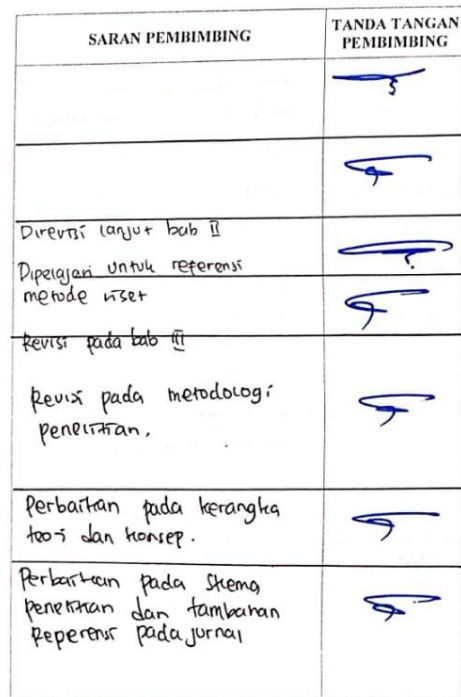 SARAN PEMBIMBING
TANDA TANGAN
PEMBIMBING
Direvisi lanjut bab II
Dipelajari untuk referensi
metode riset
Revisi pada bab III
Revisi pada metodologi
penelitian.
Perbaikan pada kerangka
teori dan konsep.
Perbaikan pada skema
penelitian dan tambahan
Reperensi pada jurnal